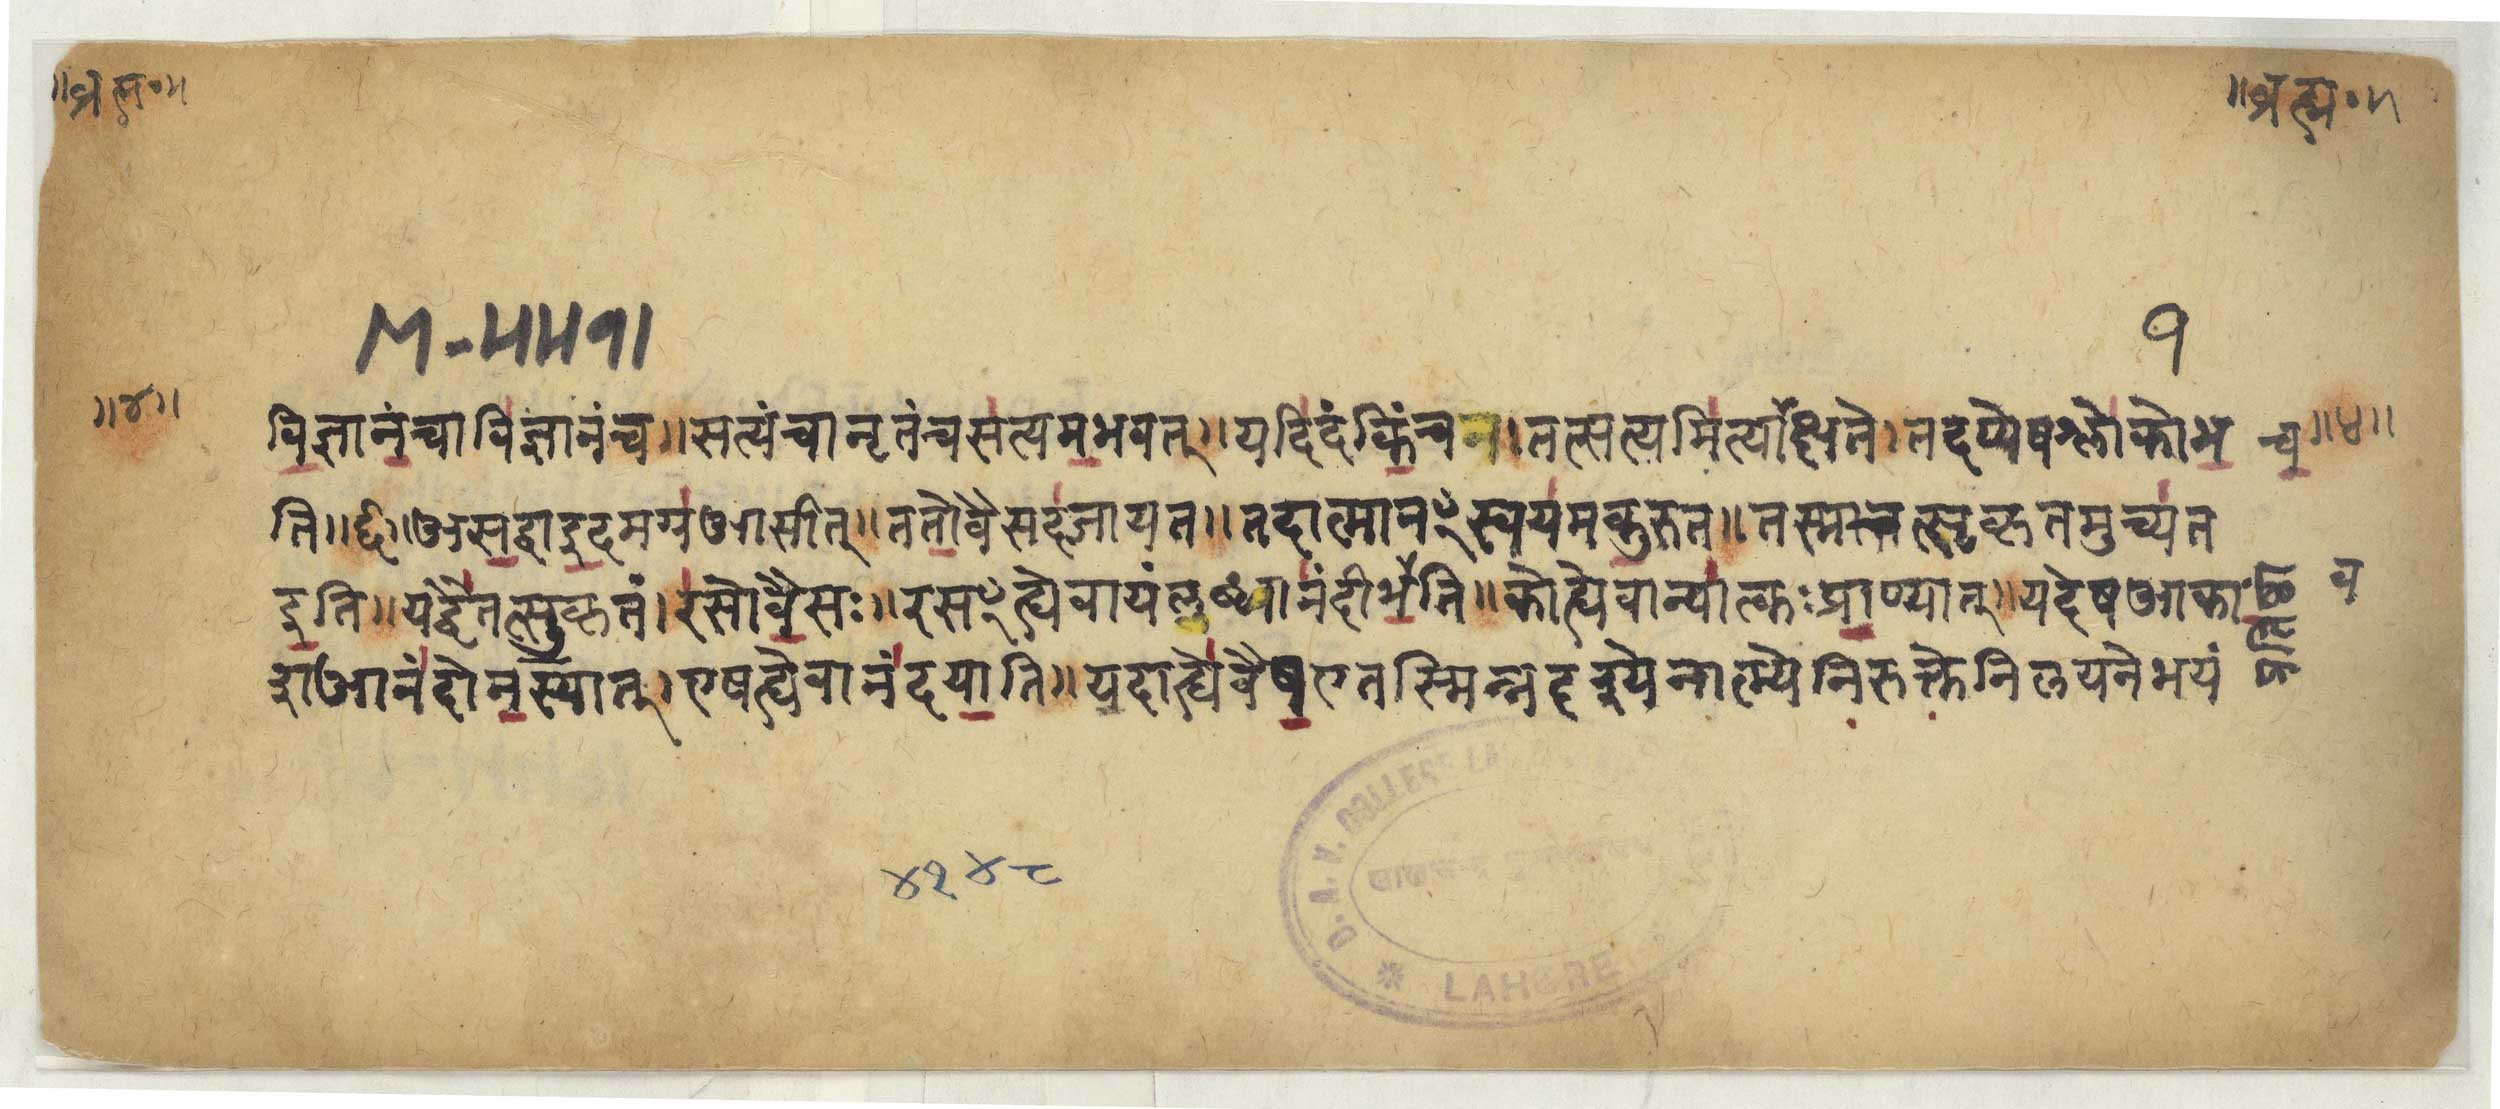 ॥ब्रह्म॰॥ ॥ब्रह्म॰॥
M-५५१। १
॥४॥ विज्ञानंचाविज्ञानंच॥सत्यंचानृतंचसत्यमभवत्॥यदिदंकिंचन।तत्सत्यमित्याचक्षते।तदप्येषश्लोकोभ ॥४॥
ति॥६॥असद्वाइदमग्रआसीत्॥ततोवैसदजायत॥तदात्मानꣳस्वयमकुरुत॥तस्मात्तत्सुकृतमुच्यत
इति॥यद्वैतत्सुकृतं।रसोवैसः॥रसꣳह्येवायंलब्ध्वानंदीभवति॥कोह्येवान्यात्कःप्राण्यात्॥यदेषआका व
शआनंदोनस्यात्।एषह्येवानंदयाति॥यदाह्येवैषएतस्मिन्नदृश्येनात्म्येनिरुक्तेनिलयनेभयं
४१४८
D.A.V. COLLEGE LAHORE